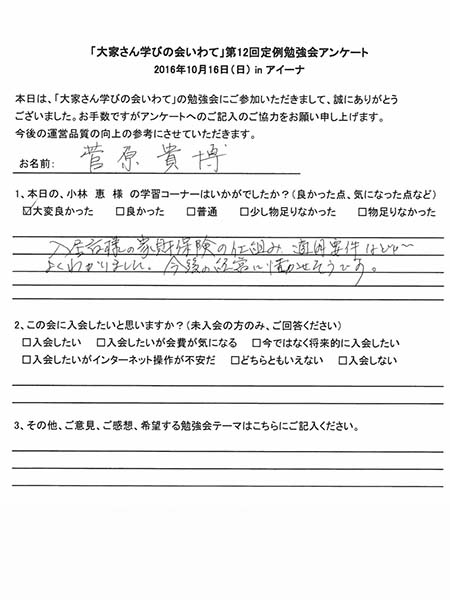 「大家さん学びの会いわて」第12回定例勉強会アンケート
2016年10月16日(日) in アイーナ
本日は、「大家さん学びの会いわて」の勉強会にご参加いただきまして、誠にありがとう
ございました。お手数ですがアンケートへのご記入のご協力をお願い申し上げます。
今後の運営品質の向上の参考にさせていただきます。
お名前: 菅原貴博
1、本日の、小林 恵 様 の学習コーナーはいかがでしたか?(良かった点、気になった点など)
☑大変良かった □良かった □普通 □少し物足りなかった □物足りなかった
入居者様の家財保険の仕組み 適用要件など
よくわかりました。今後の経営に活かせそうです。
2、この会に入会したいと思いますか?(未入会の方のみ、ご回答ください)
□入会したい □入会したいが会費が気になる □今ではなく将来的に入会したい
□入会したいがインターネット操作が不安だ □どちらともいえない □入会しない
3、その他、ご意見、ご感想、希望する勉強会テーマはこちらにご記入ください。